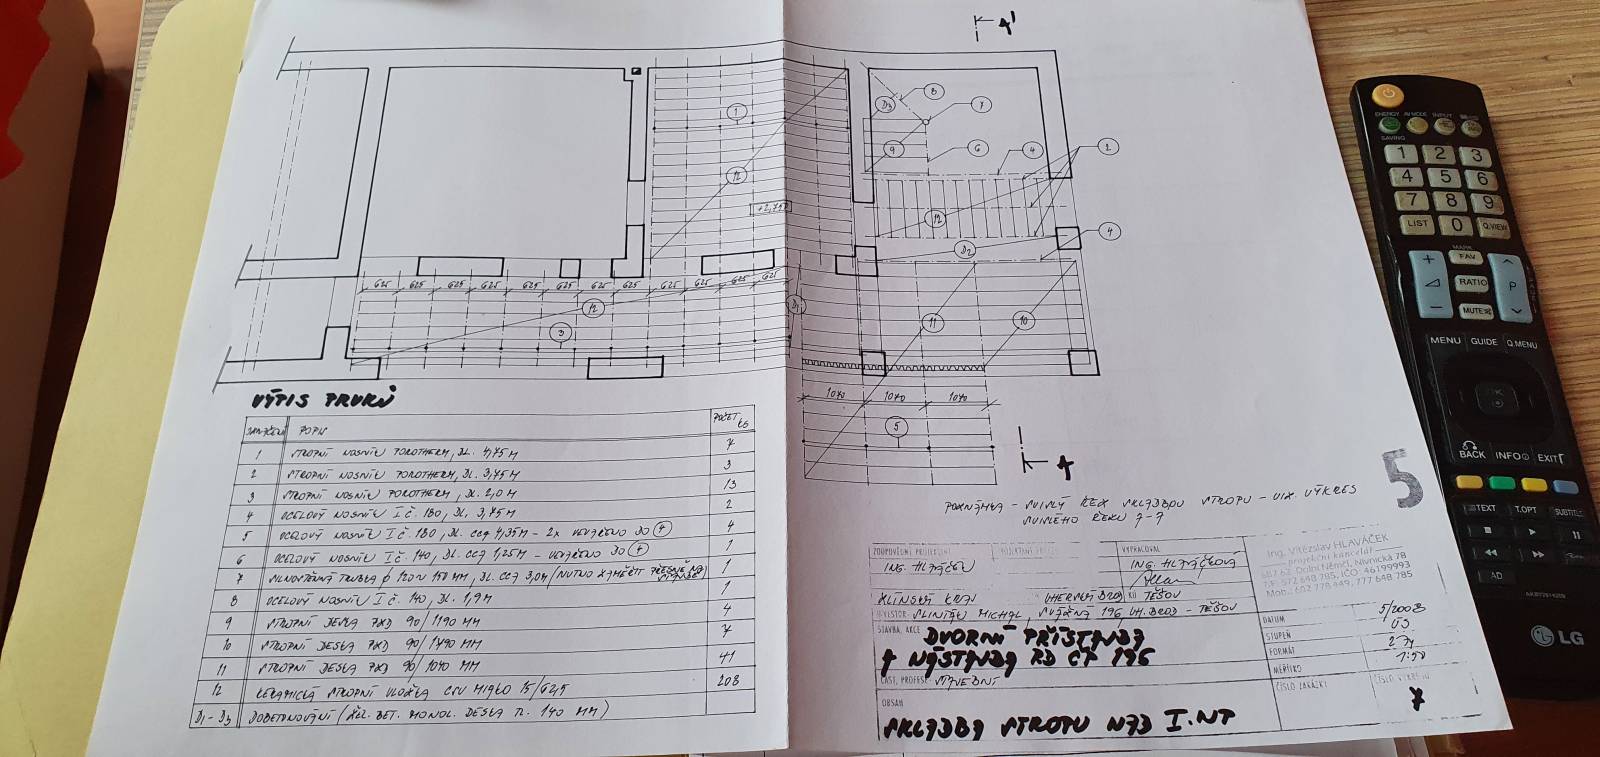 A'
1
12
+2,750
D3
8
7
9
6
4
2
12
D2
4
625 625 625 625 625 625 625 625 625 625 625 625
12
3
D1
11
10
1040 1040 1040
5
A
VÝPIS PRVKŮ
OZNAČENÍ POPIS POČET KS
1 STROPNÍ NOSNÍK POROTHERM, DL. 4,75 M 7
2 STROPNÍ NOSNÍK POROTHERM, DL. 3,75 M 3
3 STROPNÍ NOSNÍK POROTHERM, DL. 2,0 M 13
4 OCELOVÝ NOSNÍK I Č. 180, DL. 3,75 M 2
5 OCELOVÝ NOSNÍK I Č. 180, DL. CCA 4,35 M - 2x VEVAŘENO DO 4 4
6 OCELOVÝ NOSNÍK I Č. 140, DL. CCA 1,25 M - VEVAŘENO DO 4 1
7 DL. CCA 3,0 M / NUTNO ZAMĚŘIT PŘESNĚ NA STAVBĚ 1
8 OCELOVÝ NOSNÍK I Č. 140, DL. 1,9 M 1
9 STROPNÍ DESKA PZD 90/1190 MM 4
10 STROPNÍ DESKA PZD 90/1490 MM 7
11 STROPNÍ DESKA PZD 90/1040 MM 41
12 KERAMICKÁ STROPNÍ VLOŽKA CSV MIAKO 15/62,5 208
D1 - D3 DOBETONOVÁNÍ (ŽEL. BET. MONOL. DESKA TL. 140 MM)
POZNÁMKA - SVISLÝ ŘEZ SKLADBOU STROPU - VIZ. VÝKRES
SVISLÉHO ŘEZU A-A
5
ZODPOVĚDNÝ PROJEKTANT VYPRACOVAL
ING. HLAVÁČEK ING. HLAVÁČKOVÁ
Ing. Vítězslav HLAVÁČEK
projekční kancelář
687 62 Dolní Němčí, Nivnická 78
T/F: 572 648 785, IČO: 46199993
Mob.: 602 778 449, 777 648 785
ZLÍNSKÝ KRAJ UHERSKÝ BROD KÚ TĚŠOV
INVESTOR: MICHAL, 196 UH. BROD - TĚŠOV
STAVBA, AKCE DVORNÍ PŘÍSTAVBA
A NÁSTAVBA RD ČP 196
ČÁST, PROFESE: STAVEBNÍ
OBSAH
SKLADBA STROPU NAD I.NP
DATUM 5/2008
STUPEŇ
FORMÁT 2 A4
MĚŘÍTKO 1:50
ČÍSLO ZAKÁZKY ČÍSLO VÝKRESU
7
ENERGY SAVING AV MODE INPUT
1 2 3
4 5 6
7 8 9
LIST 0 Q.VIEW
MARK
FAV
+ RATIO P
- MUTE
MENU GUIDE Q.MENU
BACK INFO EXIT
TEXT T.OPT SUBTITLE
AD
LG